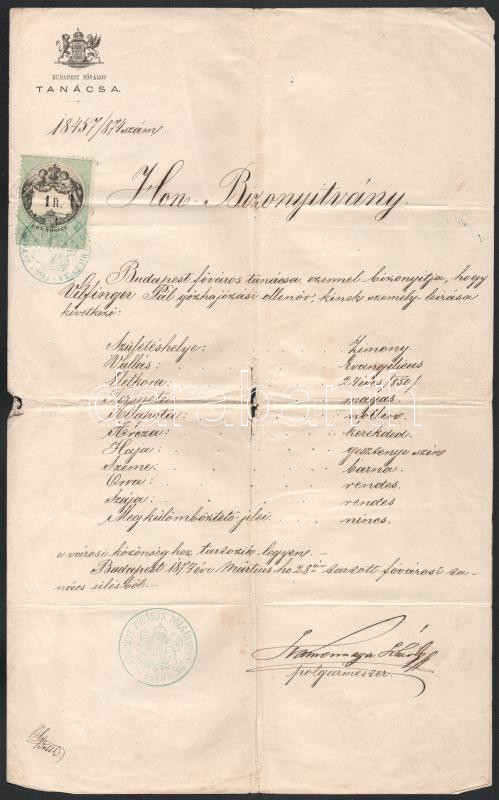 BUDAPEST FŐVÁROS
TANÁCSA.
18457/874 szám
1 ft.
Hon-Bizonyitvány.
Budapest főváros tanácsa ezennel bizonyitja, hogy
Vilfinger Pál gőzhajózási ellenőr, kinek személy leirása
következő:
Születéshelye: Zimony.
Vallás: Evangelicus
Életkora: 24 éves /850/
Termete magas
Állapota: nőtlen
Arcza: kerekded.
Haja: gesztenye szin
Szeme: barna.
Orra: rendes.
Szája: rendes
Megkülömböztető jelei nincs.
a városi községhez tartozik legyen.
Budapest 1874 évi Mártius hó 28án tartott fővárosi ta-
nács ülésből.
BUDAPEST FŐVÁROS
1873
polgármester.
darabanth